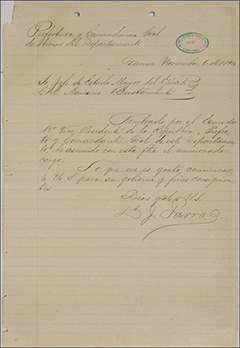 Prefectura y Comandancia Gral
de Armas del Departamento
Noviembre 6 de 189
Sr. Jefe de Estado Mayor del
Cnl. Mariano Bustamante
Nombrado por el Excmo Sor
1er Vice Presidente de la República, Prefec
to y Comandante Gral de este Departamen
to he asumido con esta fha el mencionado
cargo.
Lo que me es grato comunicar
á US para su gobierno y fines consiguien
tes.
Dios gde á US.
J. Parra